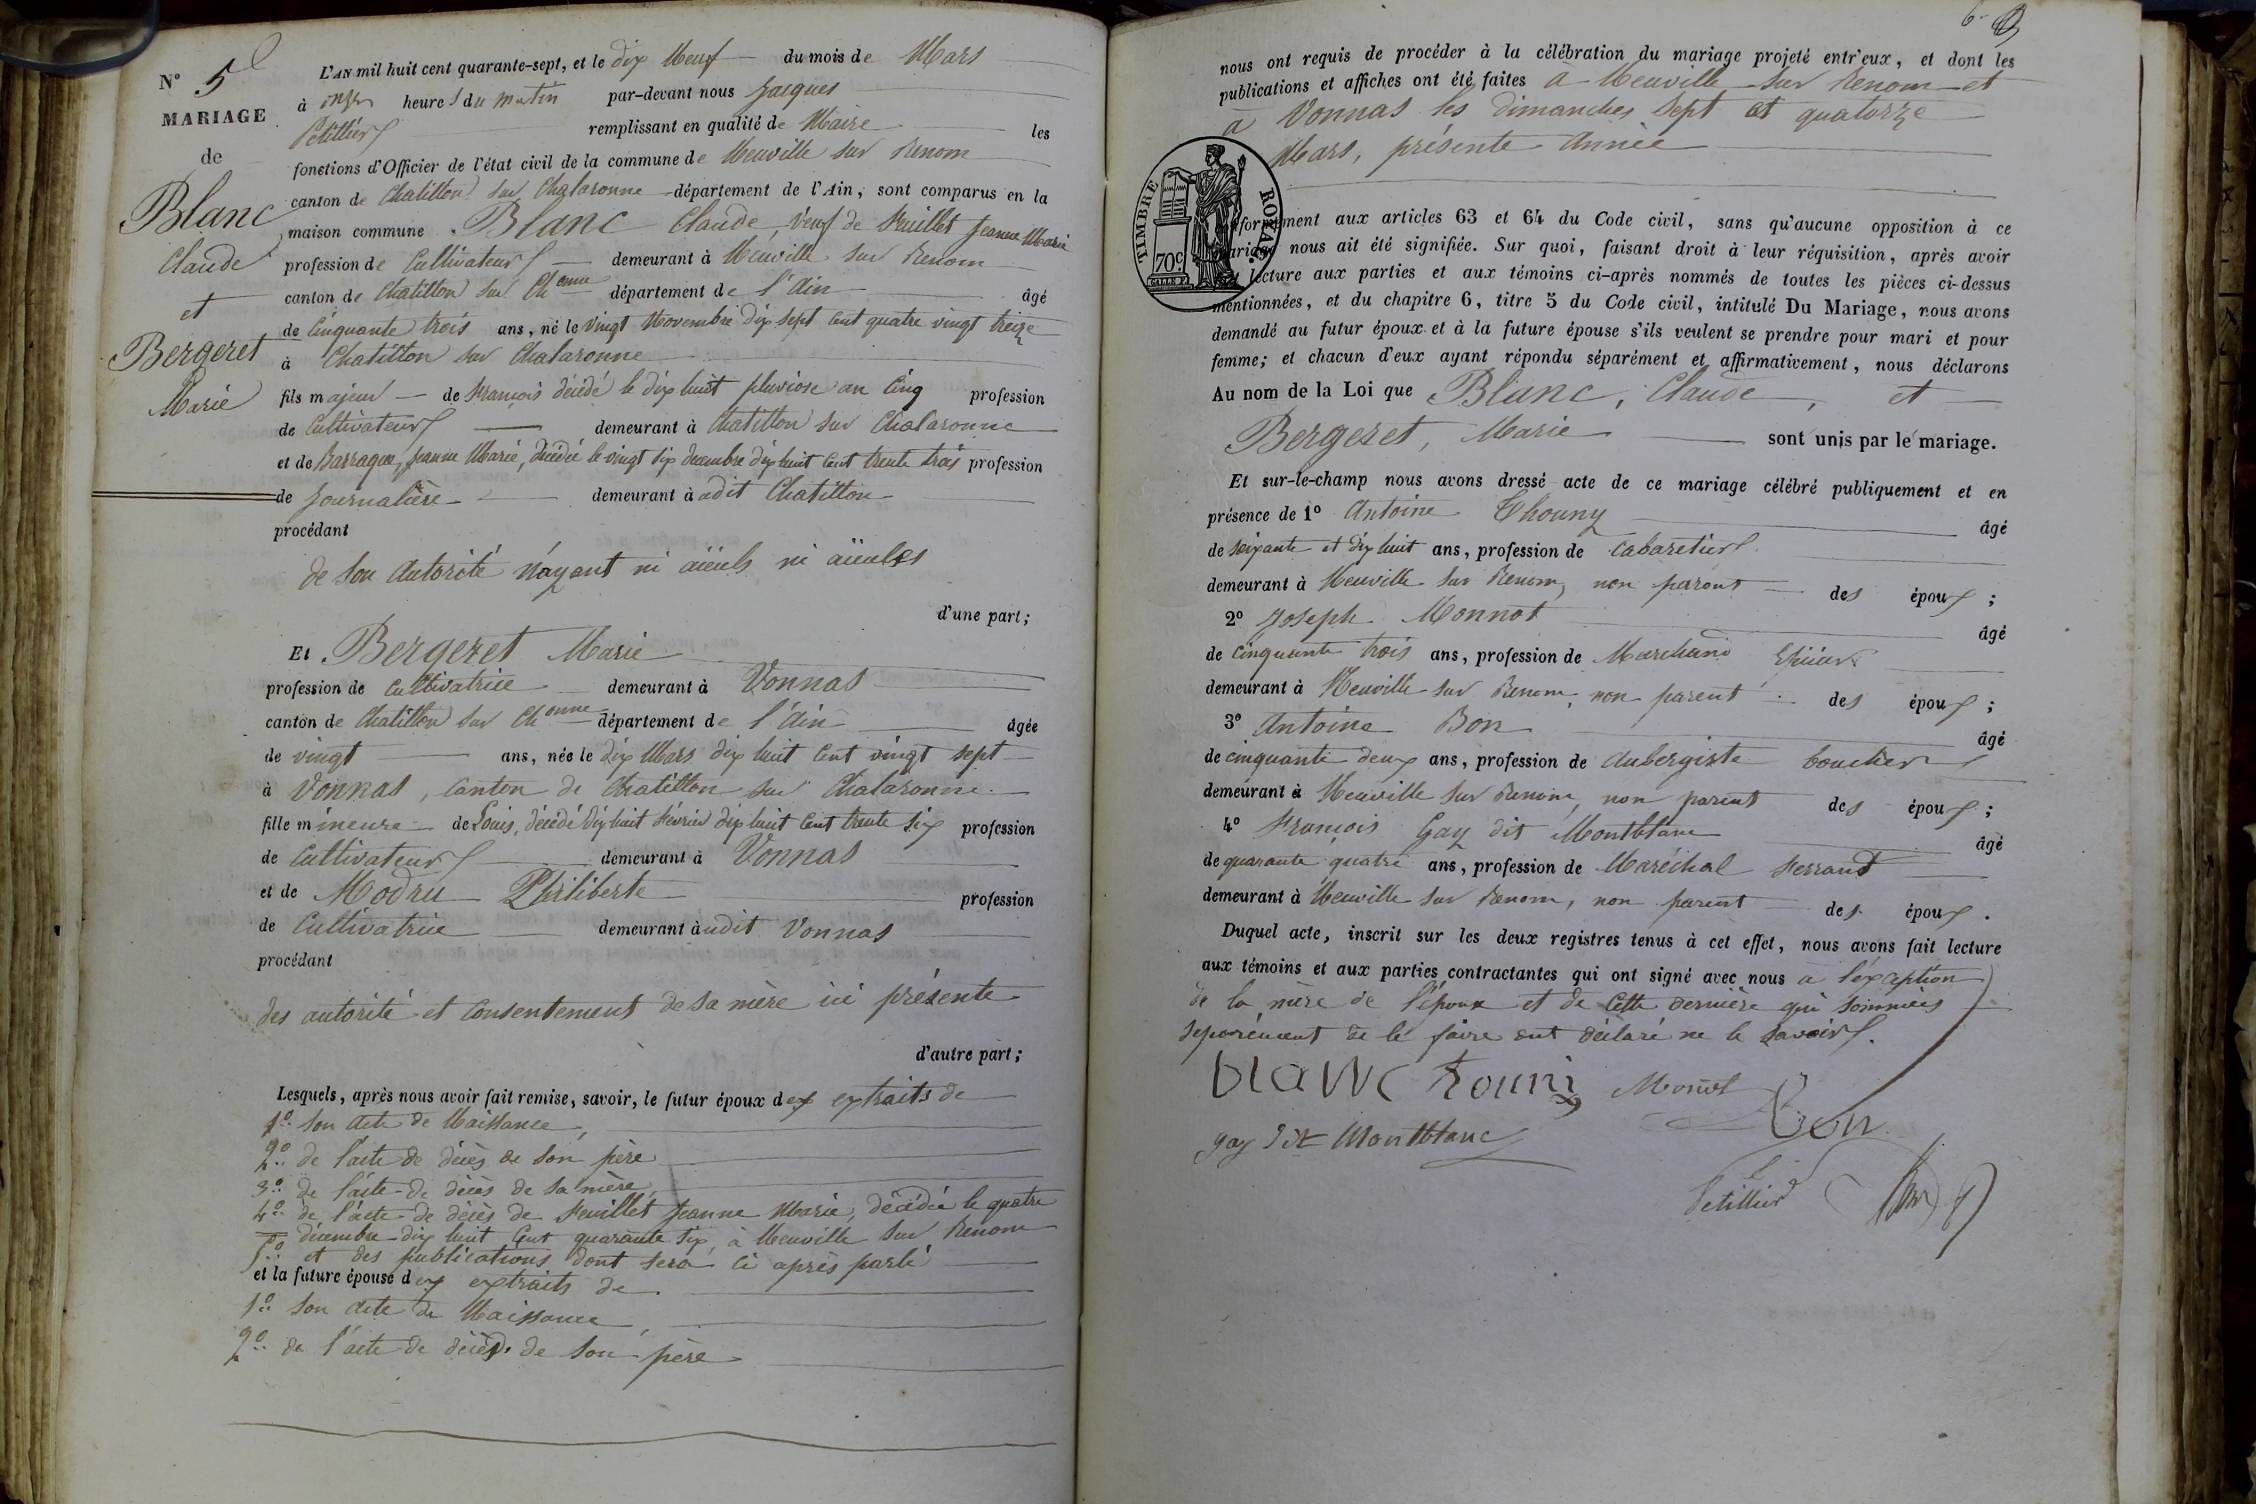 N° 5
MARIAGE
de
Blanc
Claude
et
Bergeret
Marie
L'AN mil huit cent quarante-sept, et le dix Neuf du mois de Mars
à onze heures du matin par-devant nous Jacques
Petillier remplissant en qualité de Maire les
fonctions d'Officier de l'état civil de la commune de Neuville sur Renom
canton de Chatillon sur Chalaronne département de l'Ain, sont comparus en la
maison commune Blanc Claude, veuf de Feuillet Jeanne Marie
profession de Cultivateur demeurant à Neuville sur Renom
canton de Chatillon sur Chonne département de l'Ain âgé
de Cinquante trois ans, né le vingt Novembre dix sept cent quatre vingt treize
à Chatillon sur Chalaronne
fils majeur de François décédé le dix huit pluviose an Cinq profession
de Cultivateur demeurant à Chatillon sur Chalaronne
et de Barraque, Jeanne Marie, décédée le vingt six decembre dix huit cent trente trois profession
de Journalière demeurant à adit Chatillon
procédant
de son autorité n'ayant ni aïeuls ni aïeules
d'une part;
Et Bergeret Marie
profession de Cultivatrice demeurant à Vonnas
canton de Chatillon sur Chonne département de l'Ain âgée
de vingt ans, née le dix Mars dix huit cent vingt sept
à Vonnas, canton de Chatillon sur Chalaronne
fille mineure de Louis, décédé dix huit février dix huit cent trente six profession
de Cultivateur demeurant à Vonnas
et de Modru Philiberte profession
de Cultivatrice demeurant à udit Vonnas
procédant
des autorité et consentement de sa mère ici présente
d'autre part;
Lesquels, après nous avoir fait remise, savoir, le futur époux dex extraits de
1° son acte de Naissance,
2° de l'acte de décès de son père
3° de l'acte de décès de sa mère
4° de l'acte de décès de Feuillet Jeanne Marie, décédée le quatre
décembre dix huit cent quarante six, à Neuville sur Renom
5° et des publications dont sera ci après parlé
et la future épouse dex extraits de
1° son acte de Naissance,
2° de l'acte de décès de son père
6
nous ont requis de procéder à la célébration du mariage projeté entr'eux, et dont les
publications et affiches ont été faites à Neuville sur Renom et
à Vonnas les dimanches sept et quatorze
Mars, présente année
TIMBRE ROYAL
70c.
forément aux articles 63 et 64 du Code civil, sans qu'aucune opposition à ce
mariage nous ait été signifiée. Sur quoi, faisant droit à leur réquisition, après avoir
lecture aux parties et aux témoins ci-après nommés de toutes les pièces ci-dessus
mentionnées, et du chapitre 6, titre 5 du Code civil, intitulé Du Mariage, nous avons
demandé au futur époux et à la future épouse s'ils veulent se prendre pour mari et pour
femme; et chacun d'eux ayant répondu séparément et affirmativement, nous déclarons
Au nom de la Loi que Blanc, Claude, et
Bergeret, Marie sont unis par le mariage.
Et sur-le-champ nous avons dressé acte de ce mariage célébré publiquement et en
présence de 1° Antoine Thouny âgé
de soixante et dix huit ans, profession de Cabaretier
demeurant à Neuville sur Renom, non parent des époux;
2° Joseph Monnot âgé
de cinquante trois ans, profession de Marchand Epicier
demeurant à Neuville sur Renom, non parent des époux;
3° Antoine Bon âgé
de cinquante deux ans, profession de Aubergiste boucher
demeurant à Neuville sur Renom, non parent des époux;
4° François Gay dit Montblanc âgé
de quarante quatre ans, profession de Maréchal ferrant
demeurant à Neuville sur Renom, non parent des époux.
Duquel acte, inscrit sur les deux registres tenus à cet effet, nous avons fait lecture
aux témoins et aux parties contractantes qui ont signé avec nous à l'exception
de la mère de l'épouse et de cette dernière qui sommées
séparément de le faire ont déclaré ne le savoir.
blanc touni Monot Bon
gay dit Montblanc
Petillier